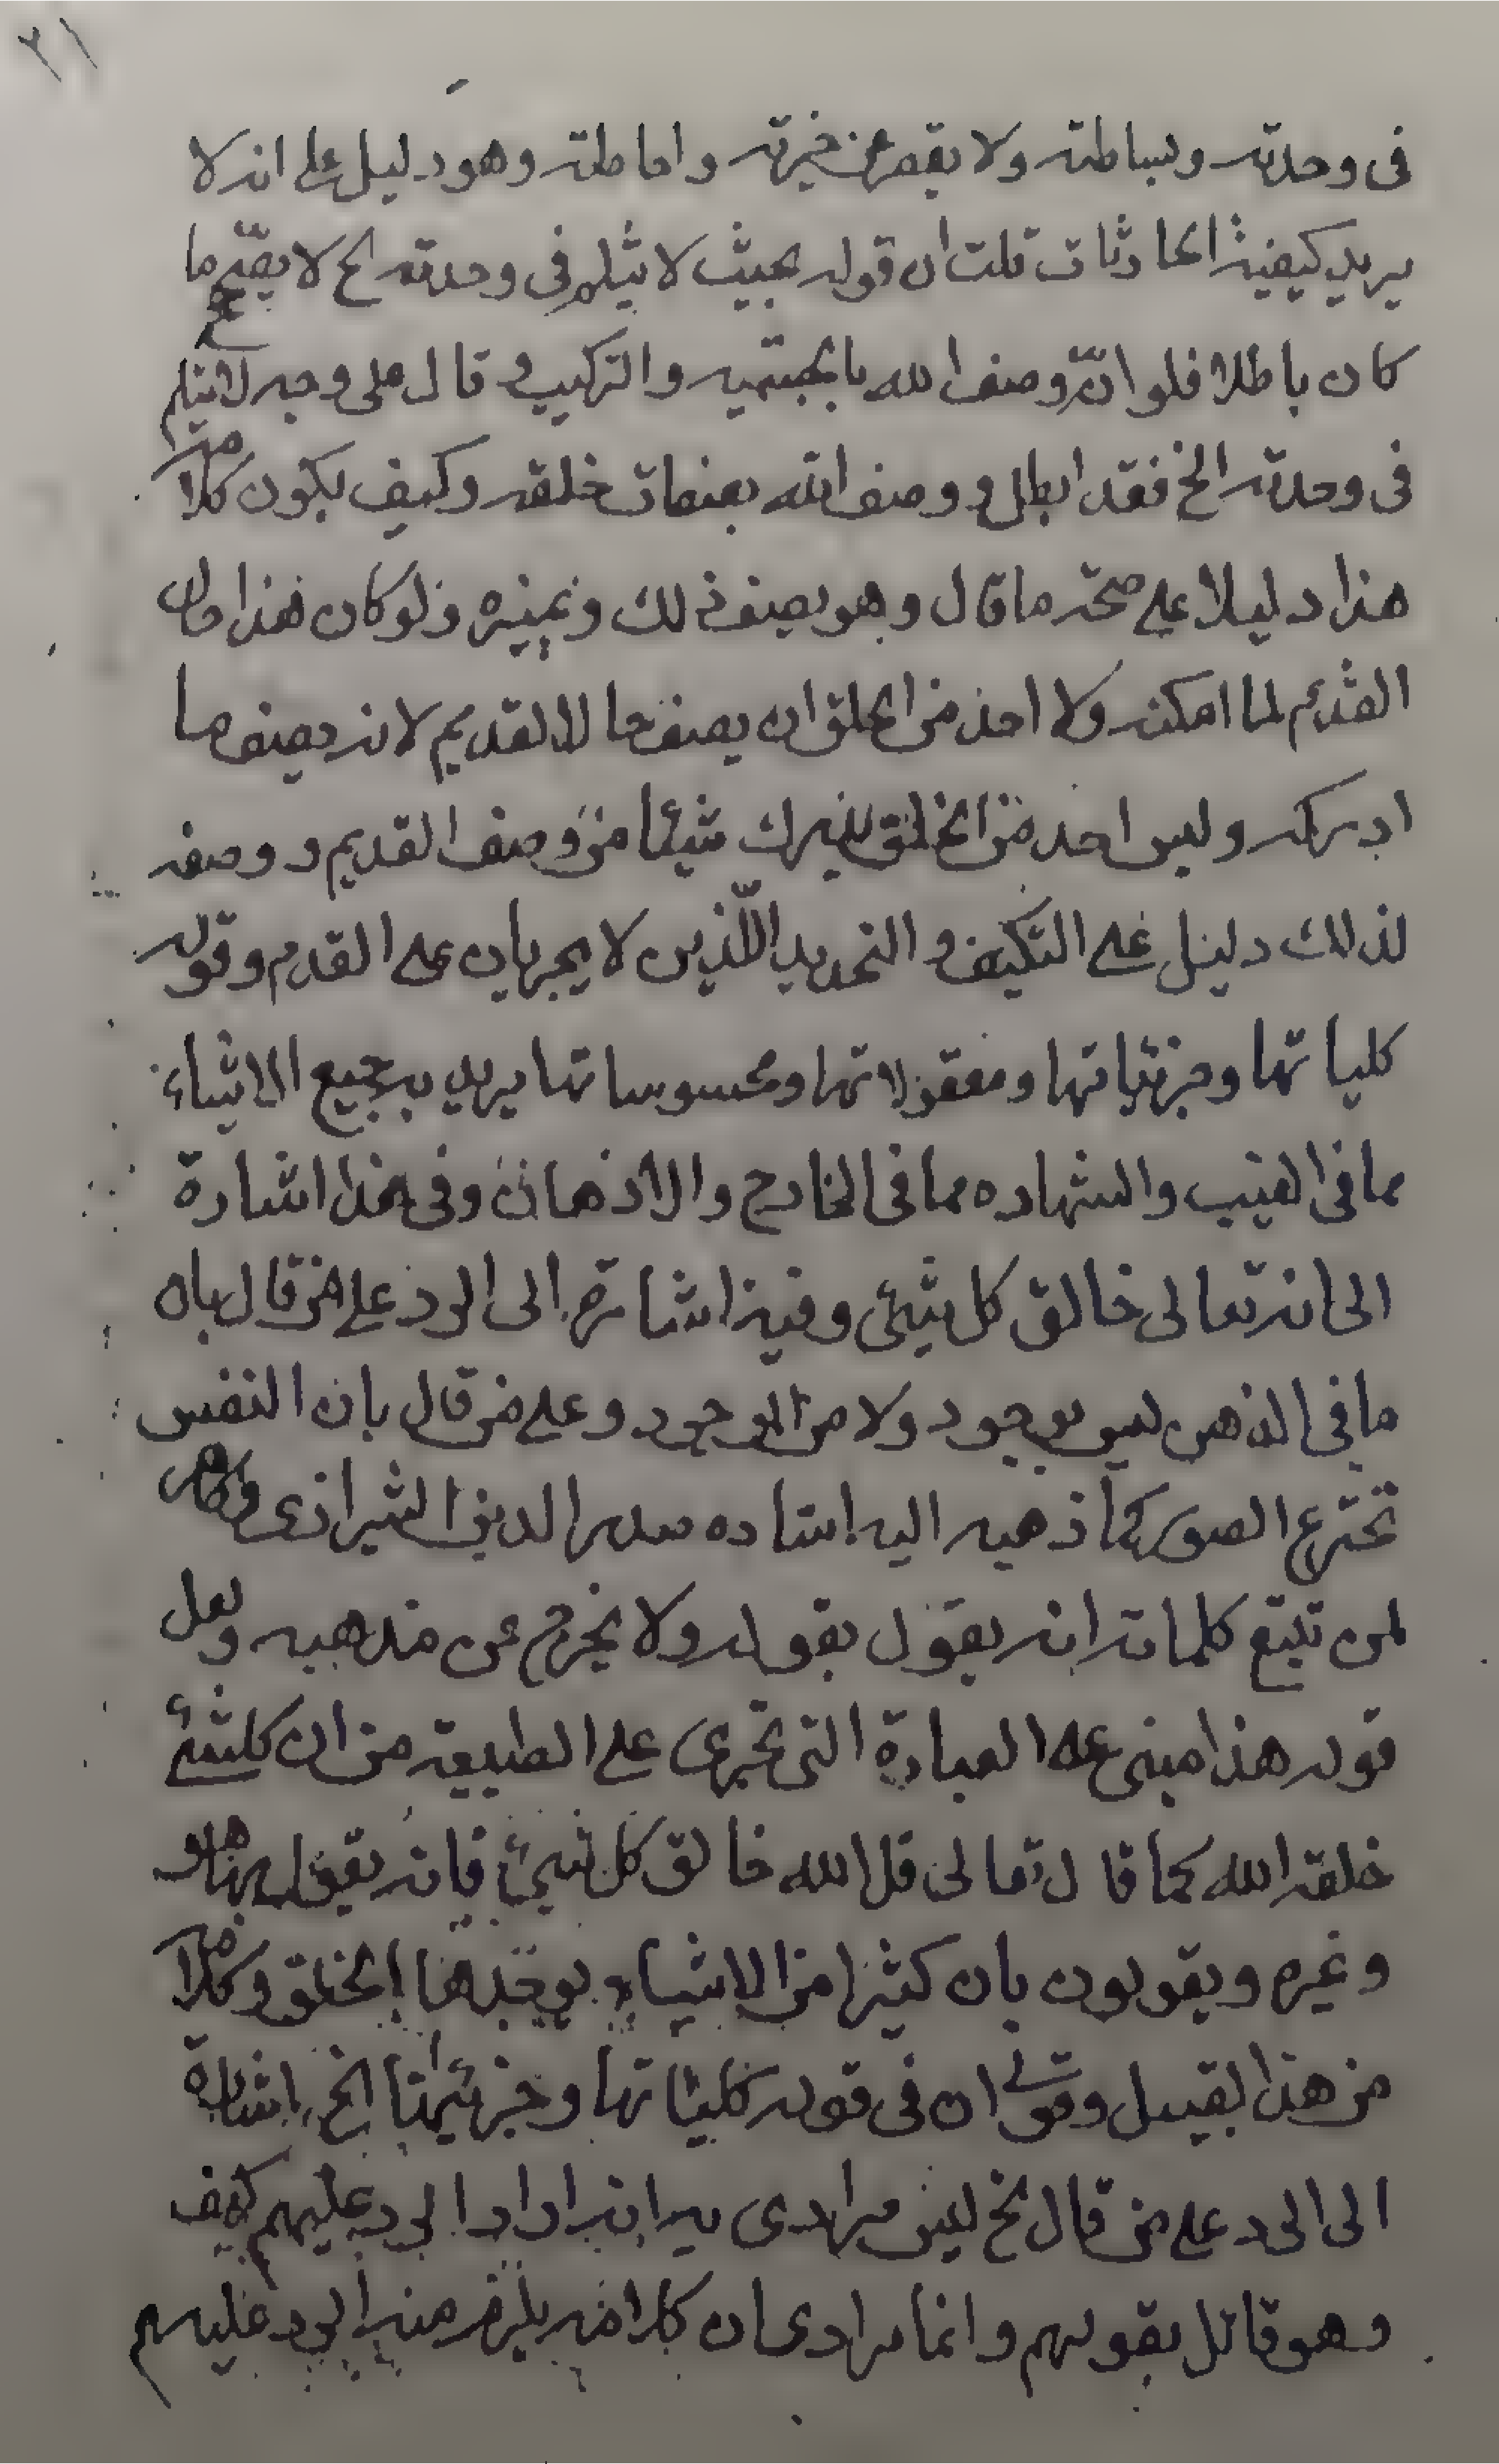 ٢١
فى وحدته وبساطته ولا يقصر عن خبرته واحاطته وهو دليل على انه لا
يريد كيفية الحادثات قلت ان قوله بحيث لا يثلم فى وحدته الخ لا يصحّح ما
كان باطلا فلو انّ وصف الله بالجسميه والتركيب و قال على وجه لا يثلم
فى وحدته الخ فقد ابطل و وصف الله بصفات خلقه وكيف يكون كلامه
هذا دليلا على صحة ما قال وهو يصف ذلك ويميزه ولو كان هذا حال
القديم لما امكنه ولا احد من الخلق ان يصف حال القديم لانه يصف ما
ادركه وليس احد من الخلق يدرك شيئا من وصف القديم و وصفه
لذلك دليل على التكيف و التحديد اللّذين لا يجريان على القدم وقوله
كلياتها وجزئياتها ومعقولاتها ومحسوساتها يريد به جميع الاشياء
مما فى الغيب والشهاده مما فى الخارج والاذهان وفى هذا اشارة
الى انه تعالى خالق كل شيئ وفيه اشارة الى الرد على من قال بان
ما فى الذهن ليس بوجود ولا من الوجود وعلى من قال بان النفس
تخترع الصور كما ذهب اليه استاده صدر الدين الشيرازى وظاهر
لمن تتبع كلماته انه يقول بقوله ولا يخرج عن مذهبه ولعل
قوله هذا مبنى على العبارة التى تجرى على الطبيعة من ان كلشئ
خلقه الله كما قال تعالى قل الله خالق كل شيئ فانه يقول بهذا هو
وغيره ويقولون بان كثيرا من الاشياء يوجدها الخلق وكلامه
من هذا لقبيل وقولى ان فى قوله كلياتها وجزئياتها الخ اشارة
الى الرد على من قال الخ ليس مرادى به انه اراد الرد عليهم كيف
وهو قائل بقولهم وانما مرادى ان كلامه يلزم منه الرد عليهم